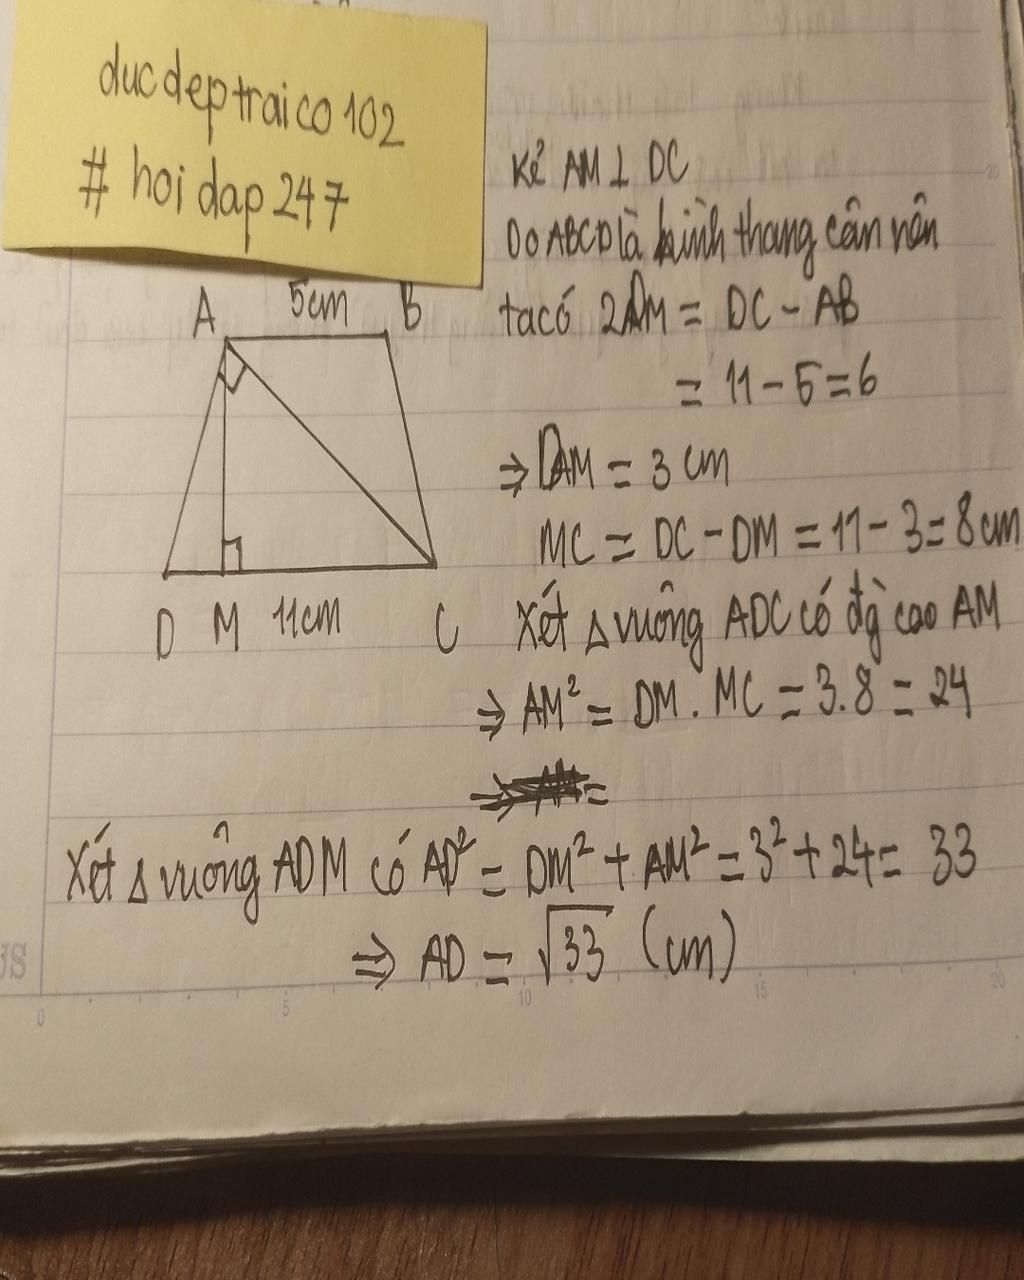 ducdeptraico102
# hoidap247
Kẻ AM ⊥ DC
Do ABCD là hình thang cân nên
ta có 2DM = DC - AB
= 11 - 5 = 6
⇒ DM = 3 cm
MC = DC - DM = 11 - 3 = 8cm
Xét Δ vuông ADC có đg cao AM
⇒ AM² = DM . MC = 3.8 = 24
Xét Δ vuông ADM có AD² = DM² + AM² = 3² + 24 = 33
⇒ AD = √33 (cm)
A 5cm B
D M 11cm C
US
0 5 10 15 20
20